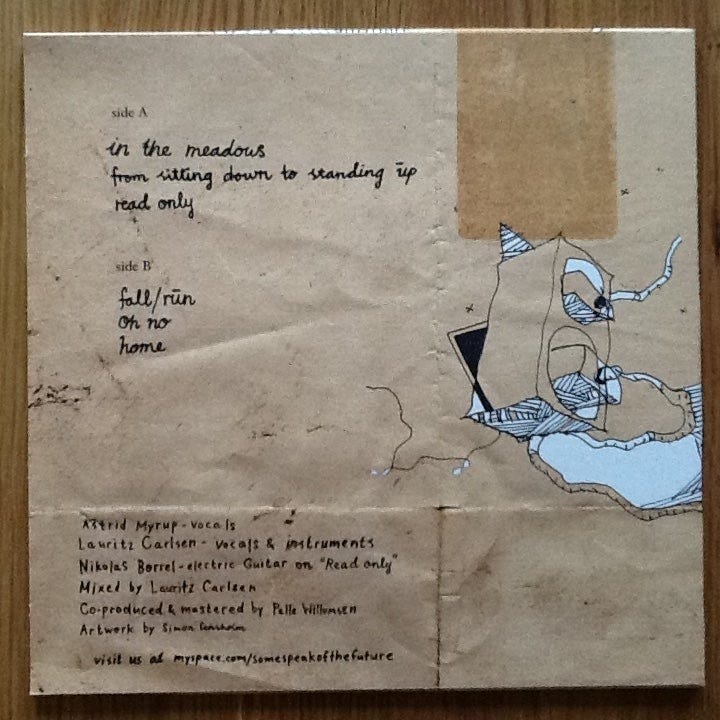 side A
in the meadows
from sitting down to standing ūp
read only
side B
fall/rūn
oh no
home
Astrid Myrup - vocals
Lauritz Carlsen - vocals & instruments
Nikolas Børrel - electric Guitar on "Read only"
Mixed by Lauritz Carlsen
Co-produced & mastered by Palle Willumsen
Artwork by Simon
visit us at myspace.com/somespeakofthefuture